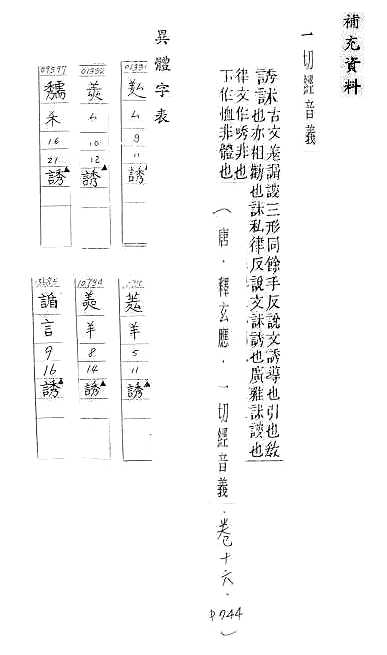 補充資料
一切經音義
誘訹古文羑𧨱二形同餘手反說文誘導也引也教
誘也亦相勸也訹私律反說文訹誘也廣雅訹䛟也
律文作唀非也
下作恤非體也
（唐．釋玄應．一切經音義．卷十六．
P744）
異體字表
厶
9
11
誘
01332
厶
10
12
誘
禾
16
21
誘
羊
5
11
誘
10794
羑
羊
8
14
誘
言
9
16
誘